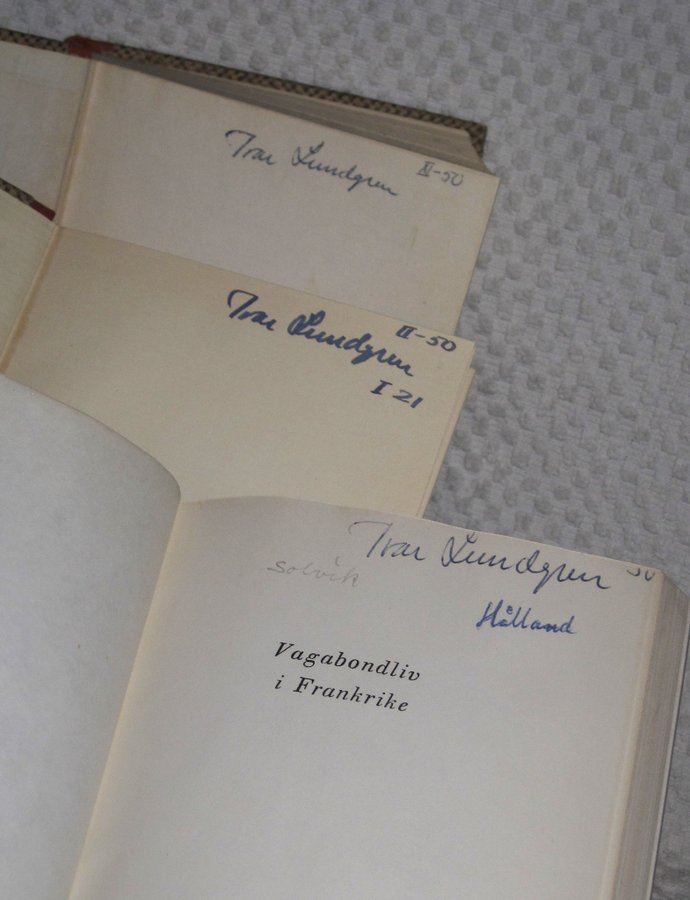 Ivar Lundgren XI-50
Ivar Lundgren II-50
I 21
Ivar Lundgren 50
Solvik
Hålland
Vagabondliv
i Frankrike